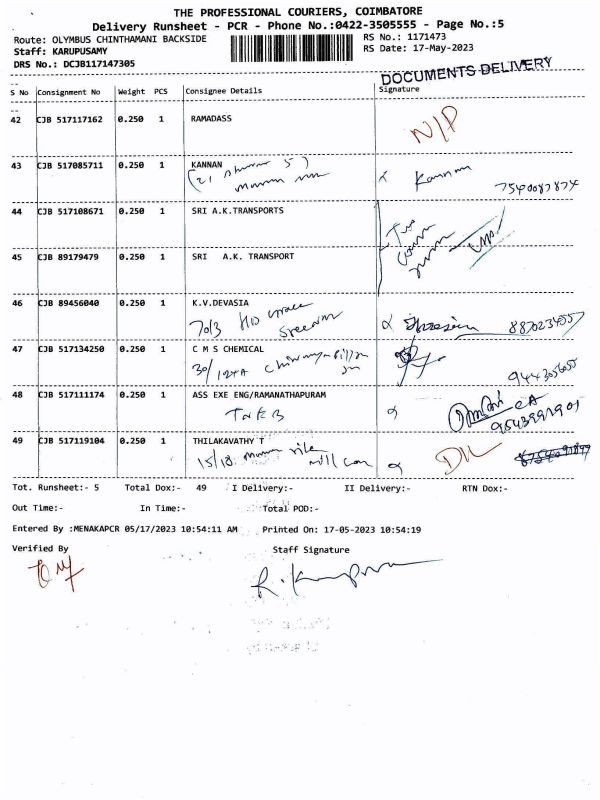 THE PROFESSIONAL COURIERS, COIMBATORE
Delivery Runsheet - PCR - Phone No.:0422-3505555 - Page No.:5
Route: OLYMBUS CHINTHAMANI BACKSIDE RS No.: 1171473
Staff: KARUPUSAMY RS Date: 17-May-2023
DRS No.: DCJB117147305
DOCUMENTS DELIVERY
S No Consignment No Weight PCS Consignee Details Signature
42 CJB 517117162 0.250 1 RAMADASS
N/P
43 CJB 517085711 0.250 1 KANNAN
Kannan
7540087874
44 CJB 517108671 0.250 1 SRI A.K.TRANSPORTS
45 CJB 89179479 0.250 1 SRI A.K. TRANSPORT
46 CJB 89456040 0.250 1 K.V.DEVASIA
47 CJB 517134250 0.250 1 C M S CHEMICAL
30/124A
9443056055
48 CJB 517111174 0.250 1 ASS EXE ENG/RAMANATHAPURAM
TNEB
9543991901
49 CJB 517119104 0.250 1 THILAKAVATHY T
15/18
DIL
Tot. Runsheet:- 5 Total Dox:- 49 I Delivery:- II Delivery:- RTN Dox:-
Out Time:- In Time:- Total POD:-
Entered By :MENAKAPCR 05/17/2023 10:54:11 AM Printed On: 17-05-2023 10:54:19
Verified By Staff Signature